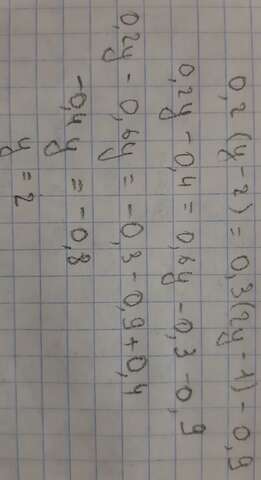 0,2 (y-2) = 0,3(2y-1) - 0,9
0,2y - 0,4 = 0,6y - 0,3 - 0,9
0,2y - 0,6y = -0,3 - 0,9 + 0,4
-0,4y = -0,8
y = 2